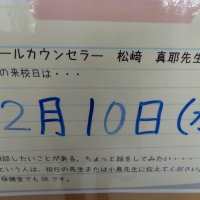 ールカウンセラー 松﨑 真耶先生
の来校日は・・・
2月10日(水
相談したいことがある、ちょっと話をしてみたい・・・
という人は、担任の先生または小島先生に伝えてください
保健室でもOKです。